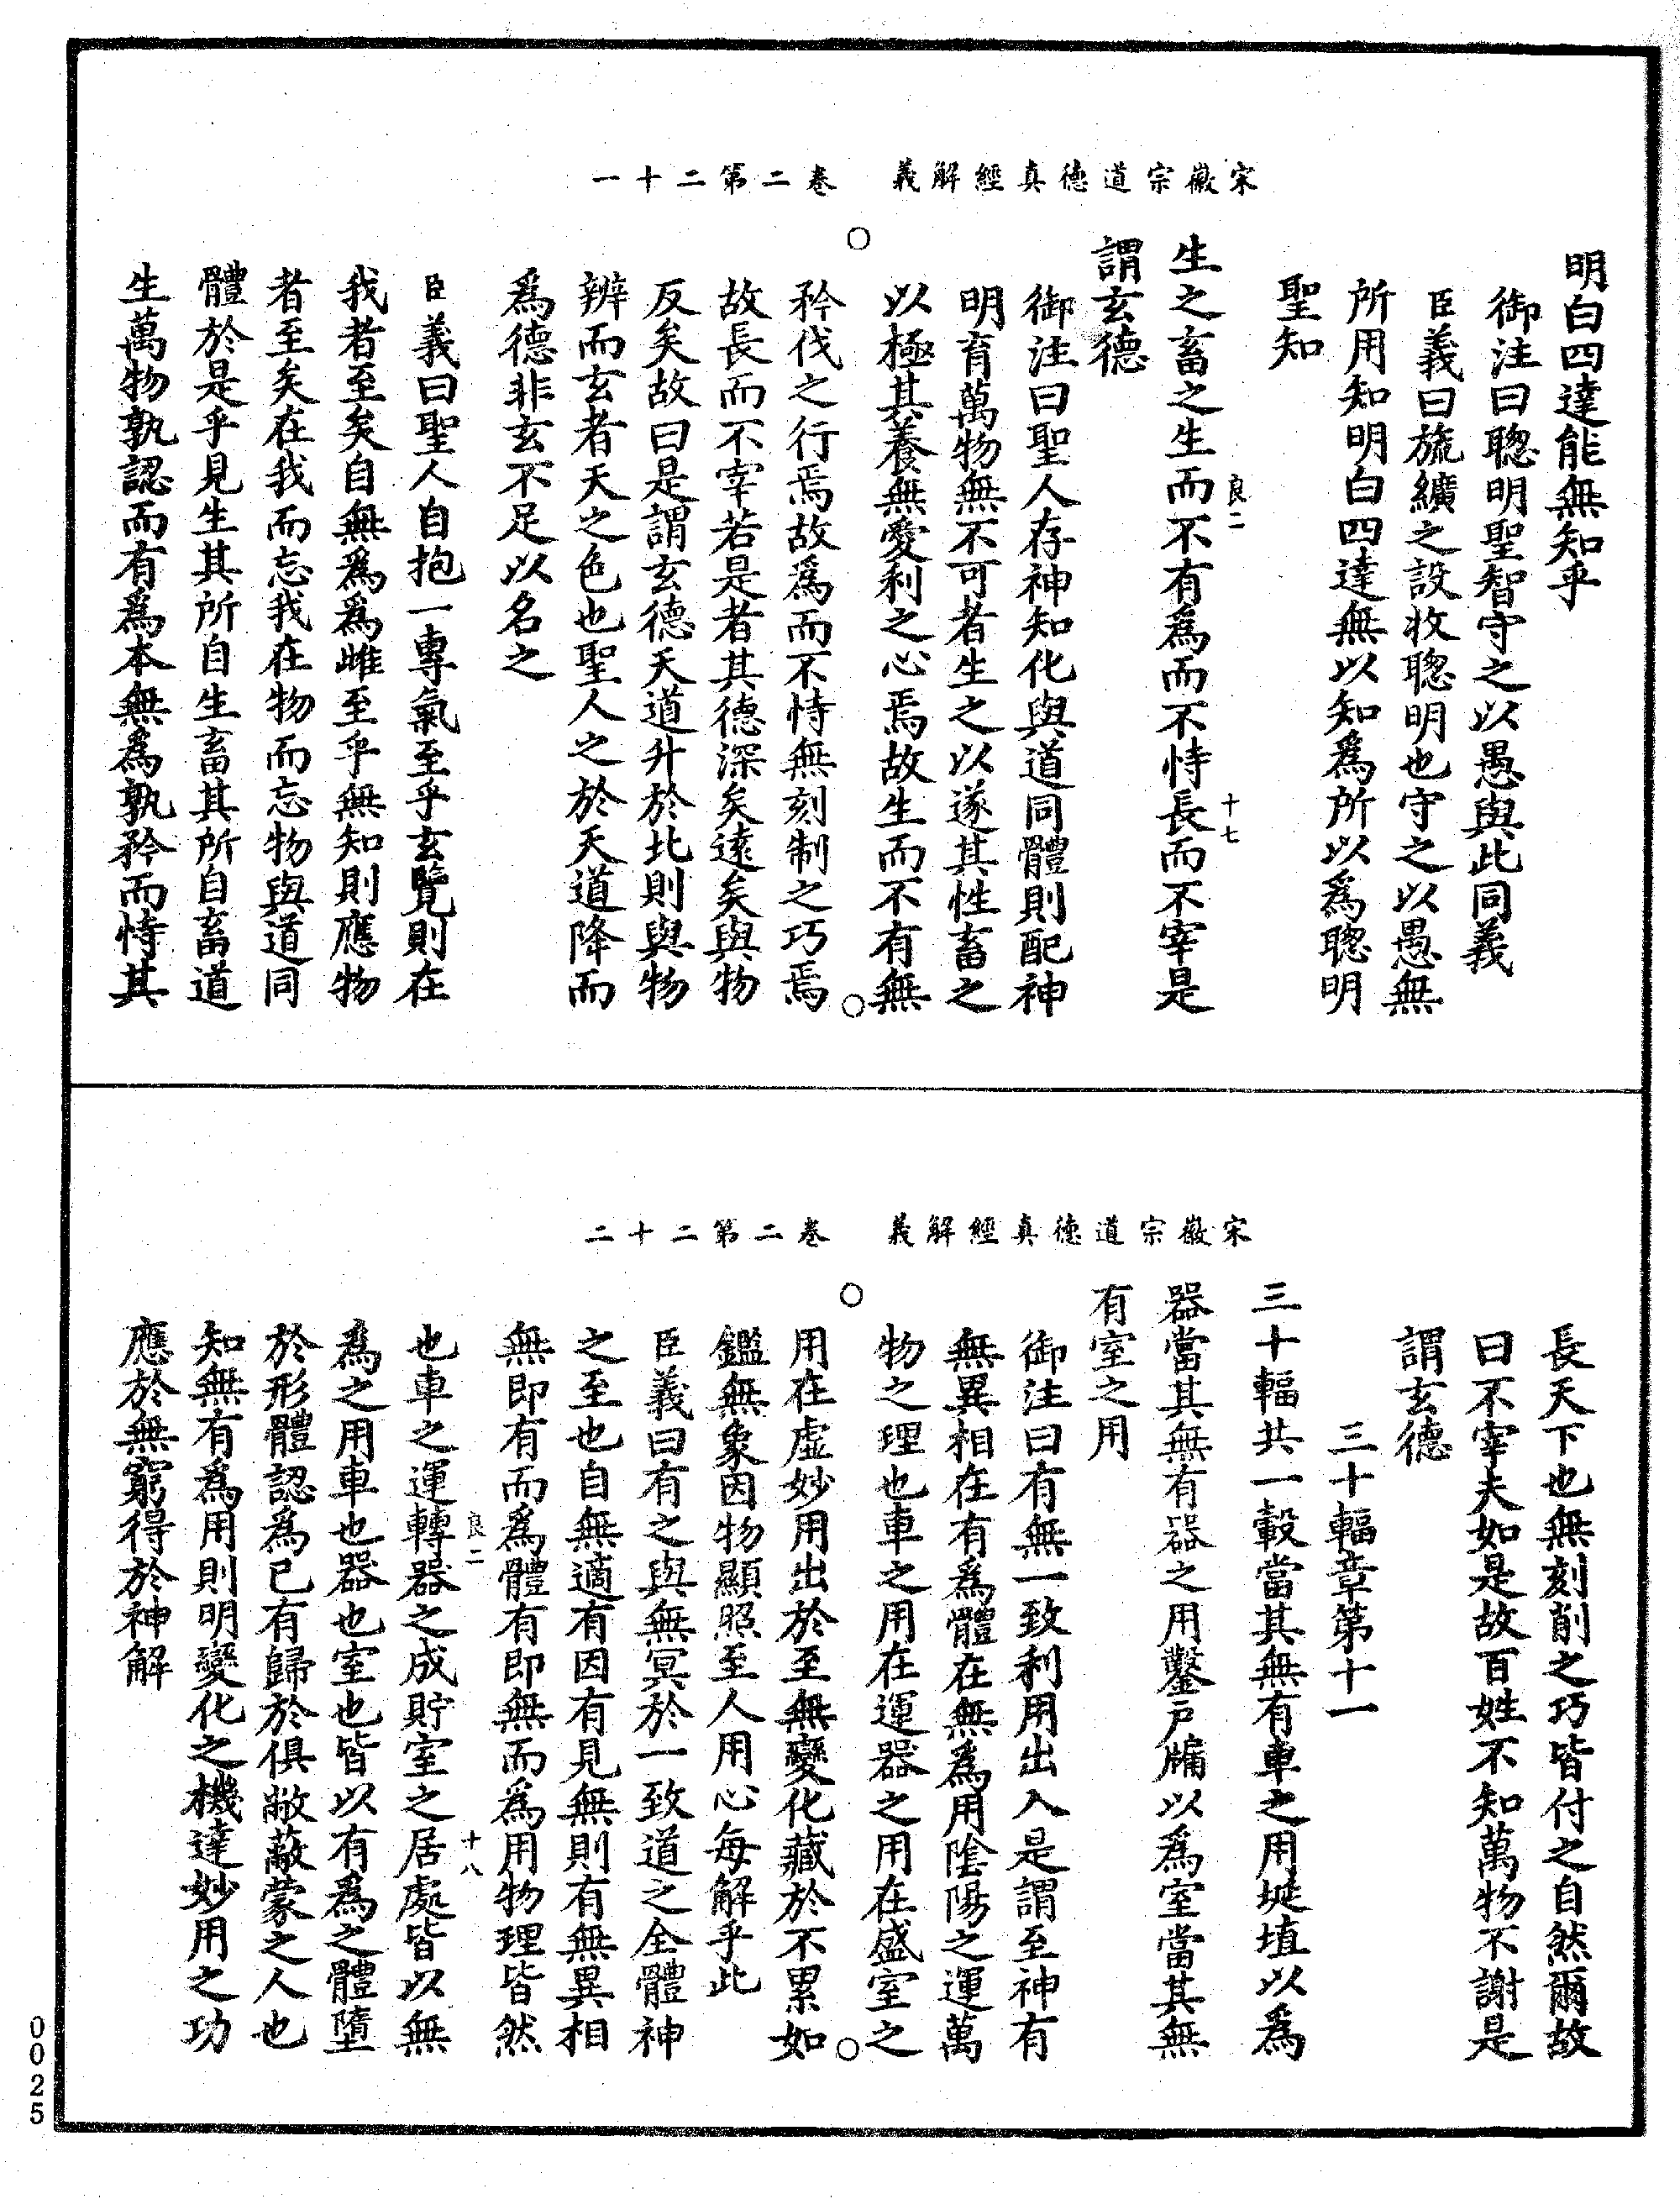 宋徽宗道德真經解義　卷二第二十一
明白四達能無知乎
御注曰聰明聖智守之以愚與此同義
臣義曰旒纊之設收聰明也守之以愚無
所用知明白四達無以知爲所以爲聰明
聖知
生之畜之生而不有爲而不恃長而不宰是
謂玄德
良二
十七
御注曰聖人存神知化與道同體則配神
明育萬物無不可者生之以遂其性畜之
以極其養無愛利之心焉故生而不有無
矜伐之行焉故爲而不恃無刻制之巧焉
故長而不宰若是者其德深矣遠矣與物
反矣故曰是謂玄德天道升於北則與物
辨而玄者天之色也聖人之於天道降而
爲德非玄不足以名之
臣義曰聖人自抱一專氣至乎玄覽則在
我者至矣自無爲爲雌至乎無知則應物
者至矣在我而忘我在物而忘物與道同
體於是乎見生其所自生畜其所自畜道
生萬物孰認而有爲本無爲孰矜而恃其
宋徽宗道德真經解義　卷二第二十二
長天下也無刻削之巧皆付之自然爾故
曰不宰夫如是故百姓不知萬物不謝是
謂玄德
三十輻章第十一
三十輻共一轂當其無有車之用埏埴以爲
器當其無有器之用鑿戶牖以爲室當其無
有室之用
御注曰有無一致利用出入是謂至神有
無異相在有爲體在無爲用陰陽之運萬
物之理也車之用在運器之用在盛室之
用在虛妙用出於至無變化藏於不累如
鑑無象因物顯照至人用心每解乎此
臣義曰有之與無冥於一致道之全體神
之至也自無適有因有見無則有無異相
無即有而爲體有即無而爲用物理皆然
良二
十八
也車之運轉器之成貯室之居處皆以無
爲之用車也器也室也皆以有爲之體墮
於形體認爲已有歸於俱敝蔽蒙之人也
知無有爲用則明變化之機達妙用之功
應於無窮得於神解
0025